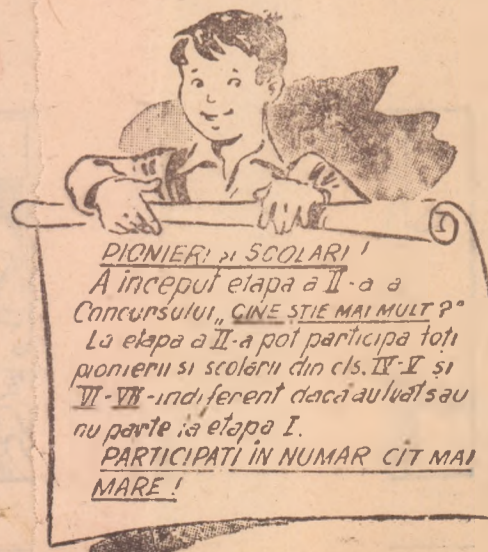 PIONIERI și SCOLARI !
A început etapa a II-a a
Concursului „CINE STIE MAI MULT ?"
La etapa a II-a pot participa toti
pionierii si scolarii din cls. IV-V și
VI-VII-indiferent dacă au luat sau
nu parte la etapa I.
PARTICIPATI IN NUMAR CIT MAI
MARE !